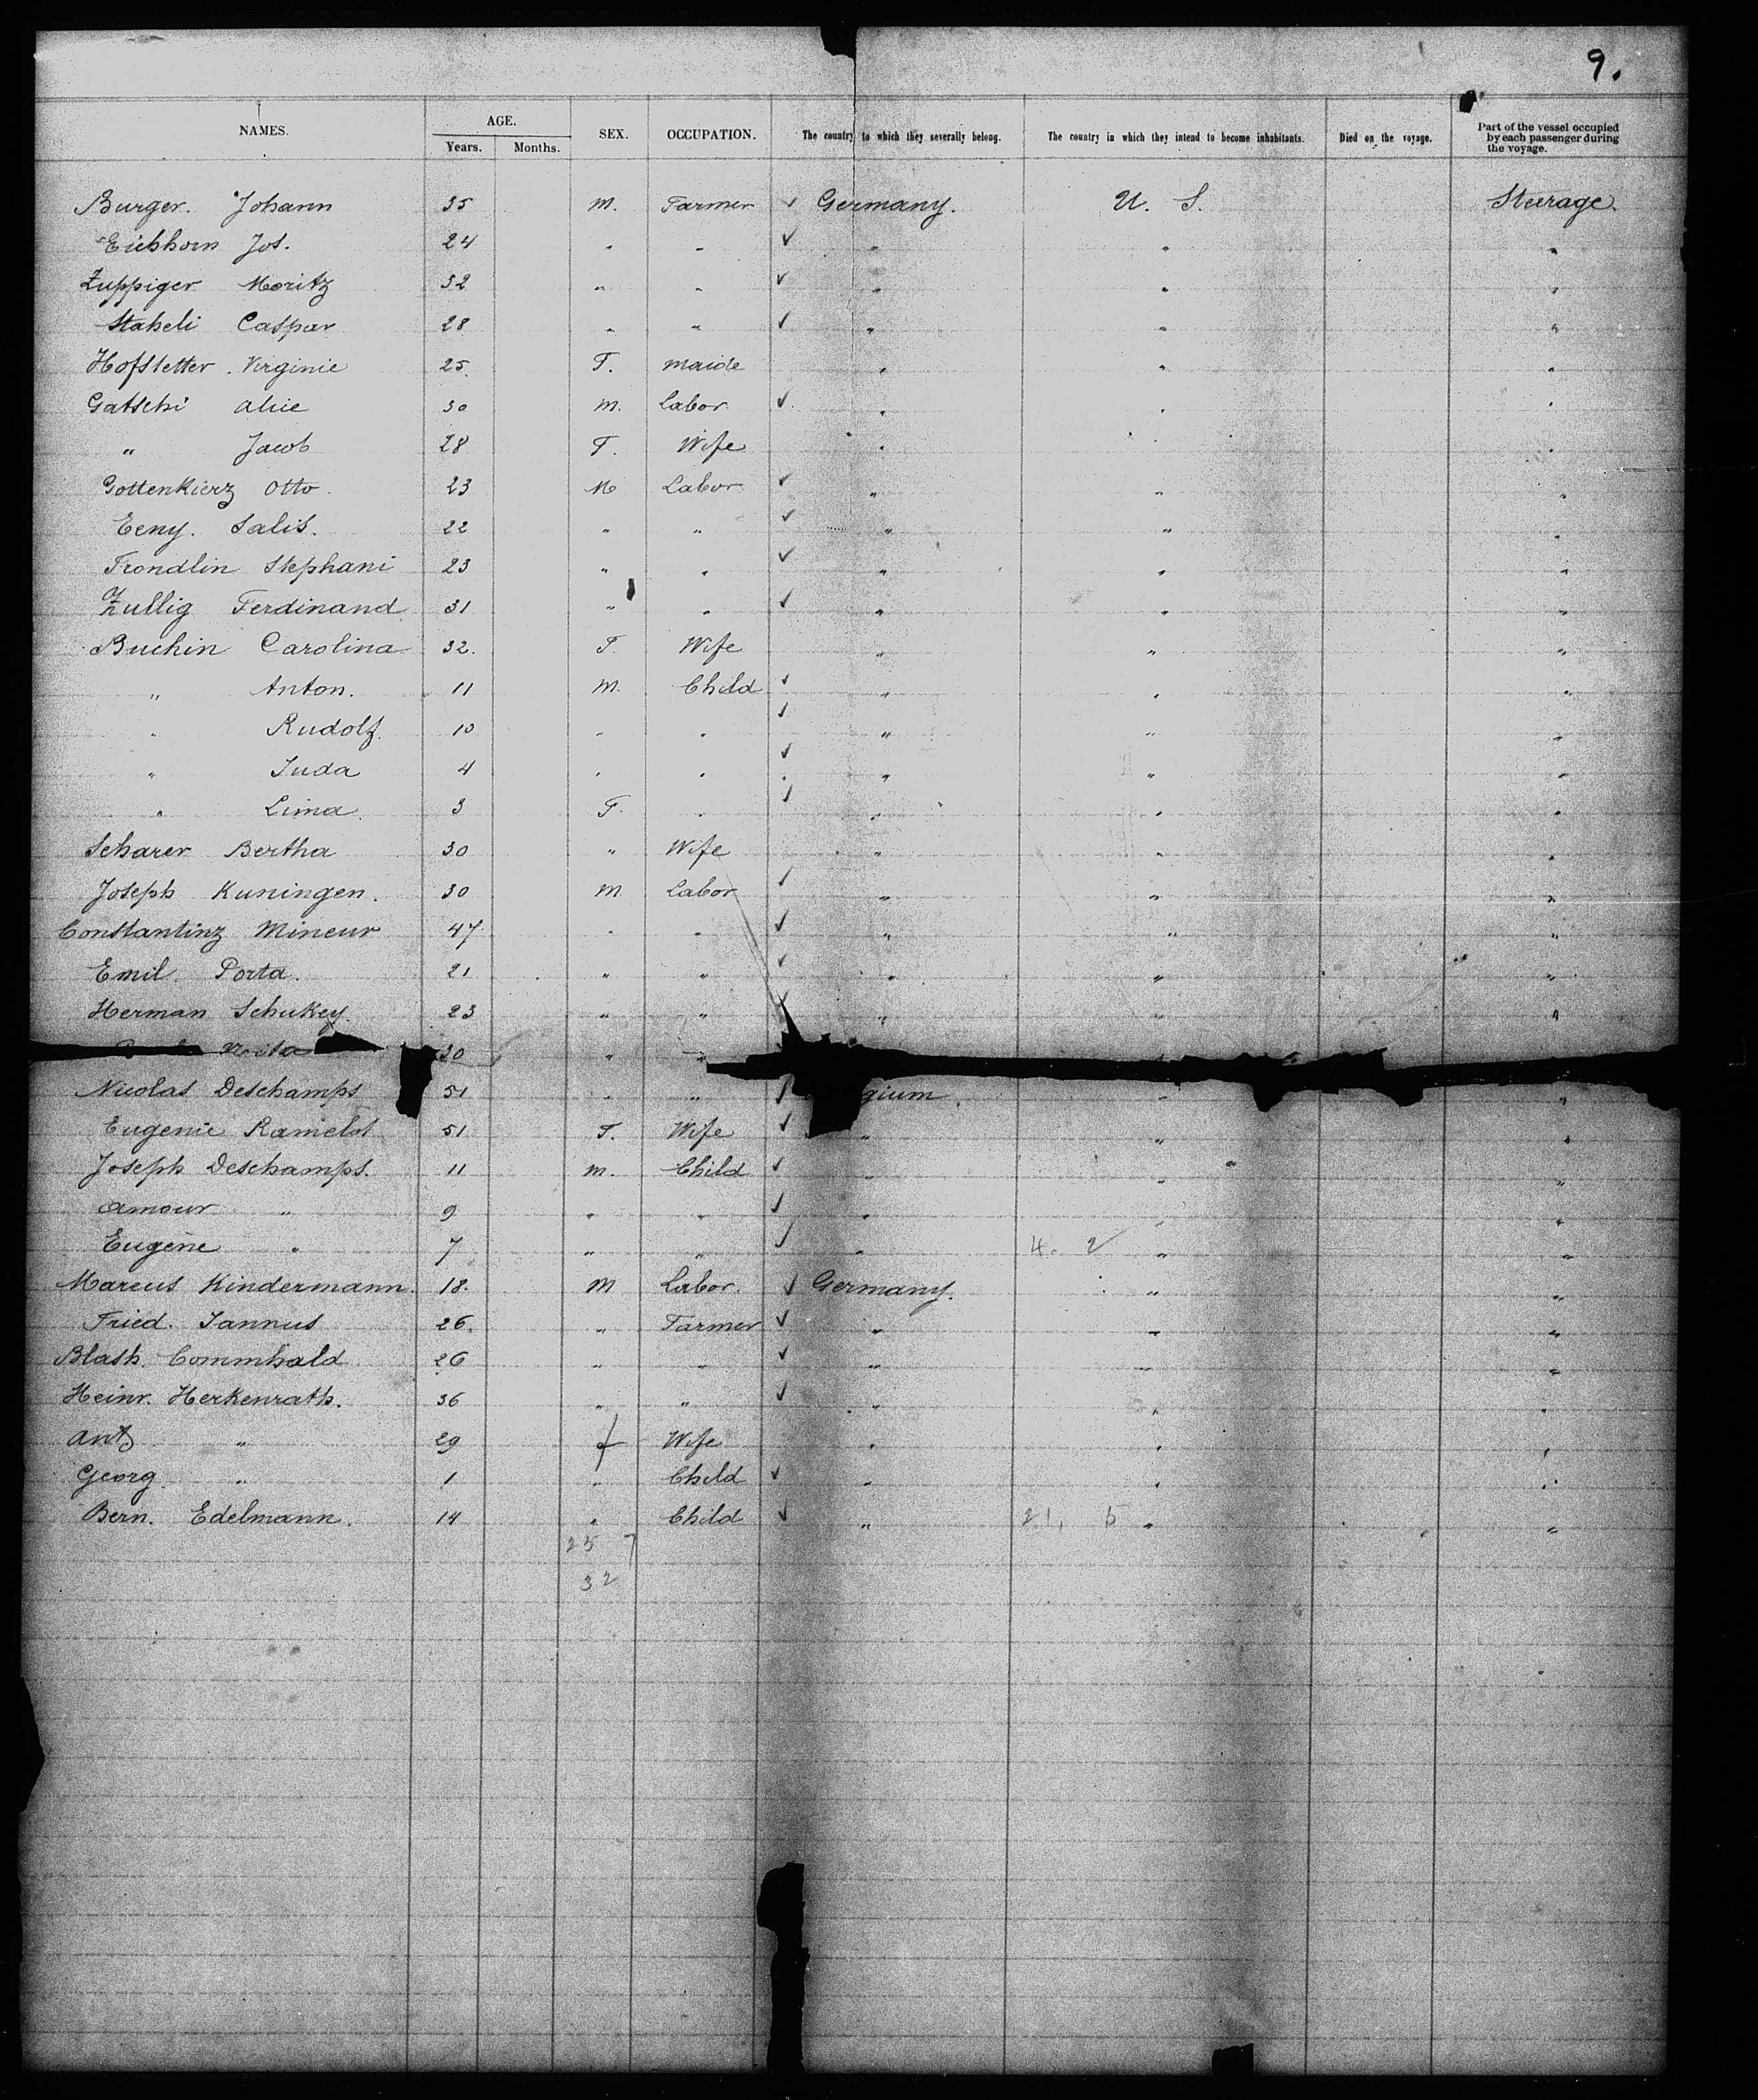 9.
NAMES. AGE. SEX. OCCUPATION. The country to which they severally belong. The country in which they intend to become inhabitants. Died on the voyage. Part of the vessel occupied by each passenger during the voyage.
Years. Months.
Burger. Johann 35 M. Farmer ✓ Germany. U. S. Steerage.
Eichhorn Jos. 24 " " ✓ " " "
Zuppiger Moritz 32 " " ✓ " " "
Staheli Caspar 28 " " ✓ " " "
Hofstetter. Virginie 25. F. maide " " "
Gatschi Alice 30 M. Labor ✓ " " "
" Jacob 28 F. Wife " " "
Gottenkierz Otto. 23 M Labor ✓ " " "
Eeny. Salis. 22 " " ✓ " " "
Frondlin Stephani 23 " " ✓ " " "
Zullig Ferdinand 31 " " ✓ " " "
Buchin Carolina 32. F. Wife " " "
" Anton. 11 M. Child ✓ " " "
" Rudolf. 10 " " ✓ " " "
" Juda 4 " " ✓ " " "
" Lima 3 F. " ✓ " " "
Scharer Bertha 30 " Wife " " "
Joseph Kuningen. 30 M Labor ✓ " " "
Constantinz Mineur 47 " " ✓ " " "
Emil Porta. 21 " " ✓ " " "
Herman Schukey. 23 " " " " "
30 " "
Nicolas Deschamps 51 " " ✓ gium. " "
Eugenie Ramelot 51 F. Wife ✓ " " "
Joseph Deschamps. 11 M. Child ✓ " " "
Amour " 9 " " ✓ " " "
Eugene " 7 " " ✓ " 4. 2 " "
Marcus Kindermann. 18. M Labor. ✓ Germany. " "
Fried. Jannus 26. " Farmer ✓ " " "
Blash. Commhald 26 " " ✓ " " "
Heinr. Herkenrath. 36 " " ✓ " " "
Ant " 29 f Wife " " "
Georg " 1 " Child ✓ " " "
Bern. Edelmann. 14 " Child ✓ " 21, 5 " "
25 7
32